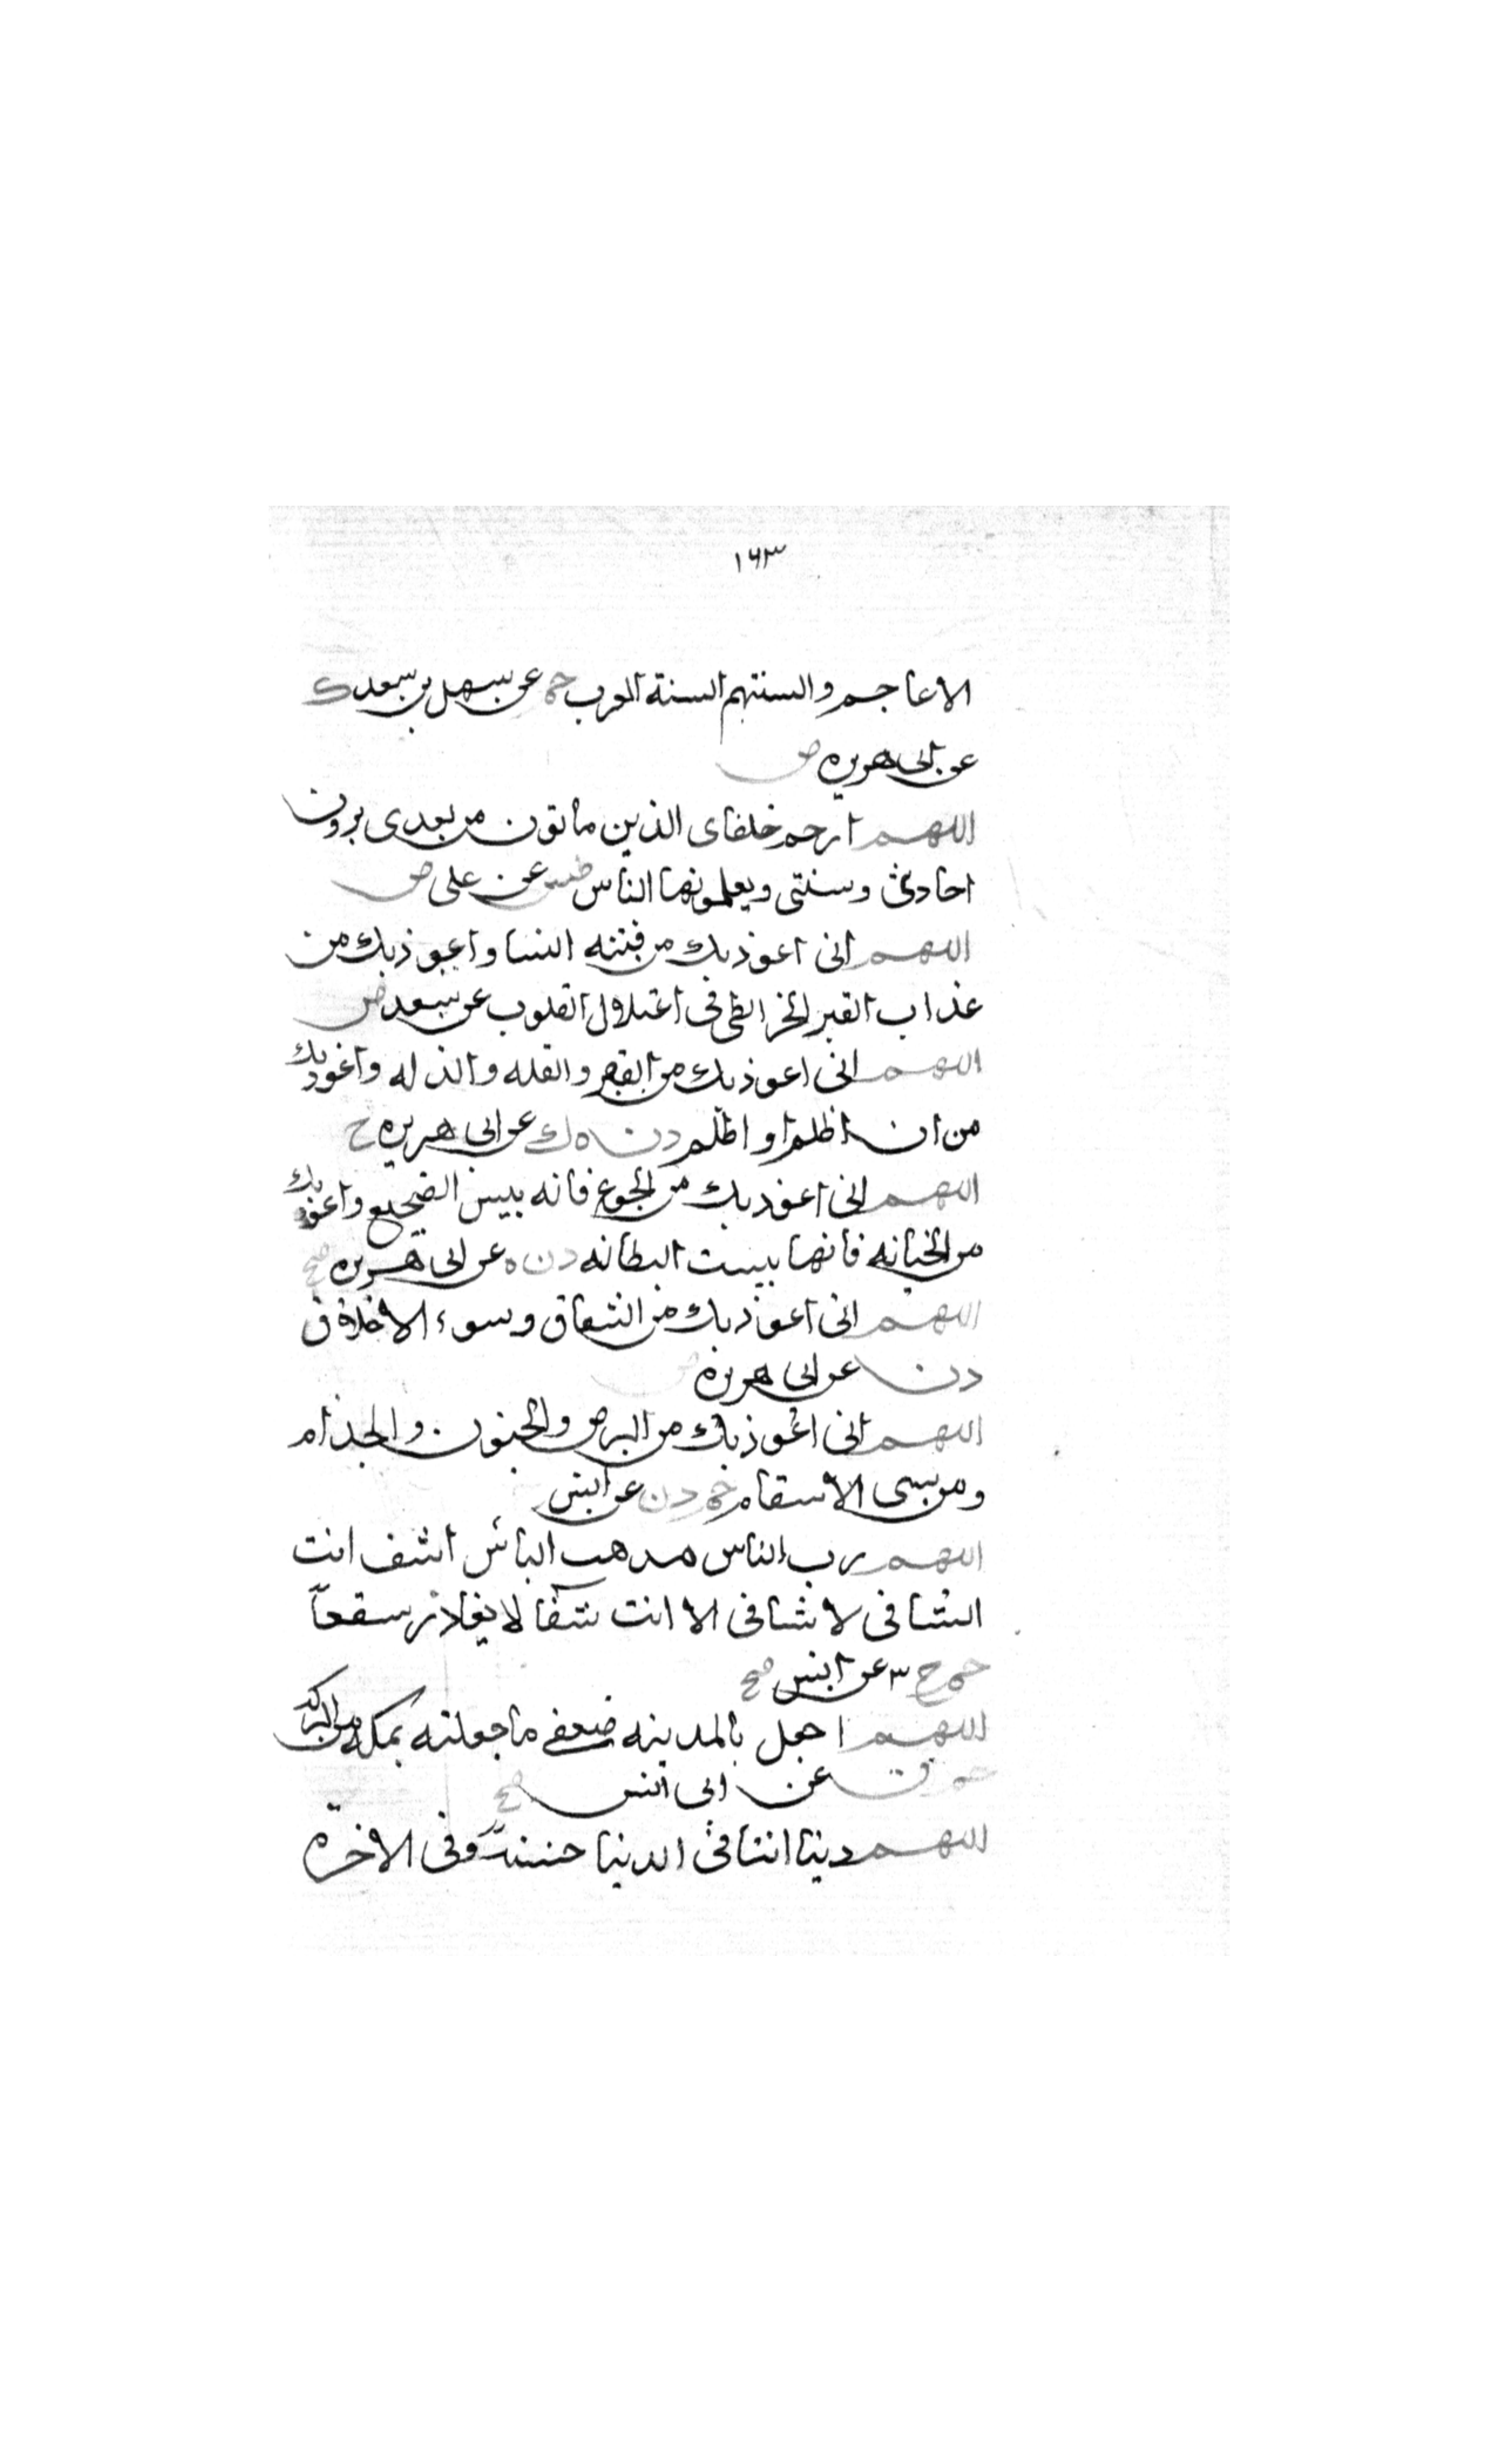 ١٦٣
الاعاجم والسنتهم السنة العرب حم عن سهل بن سعد ك
عن ابى هريره ض
اللهم ارحم خلفاى الذين ماتون من بعدى يروون
احاديثى وسنتى ويعلمونها الناس طس عن على ض
اللهم انى اعوذ بك من فتنه النسا واعوذ بك من
عذاب القبر الخرائطى فى اعتلال القلوب عن سعد ض
اللهم انى اعوذ بك من الفقر والقله والذله واعوذ بك
من ان اظلم او اظلم د ن ه ك عن ابى هريره ح
اللهم انى اعوذ بك من الجوع فانه بيس الضجيع واعوذ بك
من الخيانه فانها بيست البطانه د ن ه عن ابى هريره صح
اللهم انى اعوذ بك من الشقاق وسوء الاخلاق
د ن عن ابى هريرة ض
اللهم انى اعوذ بك من البرص والجنون والجذام
ومن سيى الاسقام حم د ن عن انس
اللهم رب الناس مذهب الباس اشف انت
الشافى لا شافى الا انت شفا لا يغادر سقماً
حم خ ٣ عن انس صح
اللهم اجعل بالمدينه ضعفى ما جعلته بمكه من البركه
حم ق عن ابى انس صح
اللهم ربنا اتنا فى الدنيا حسنة وفى الاخرة